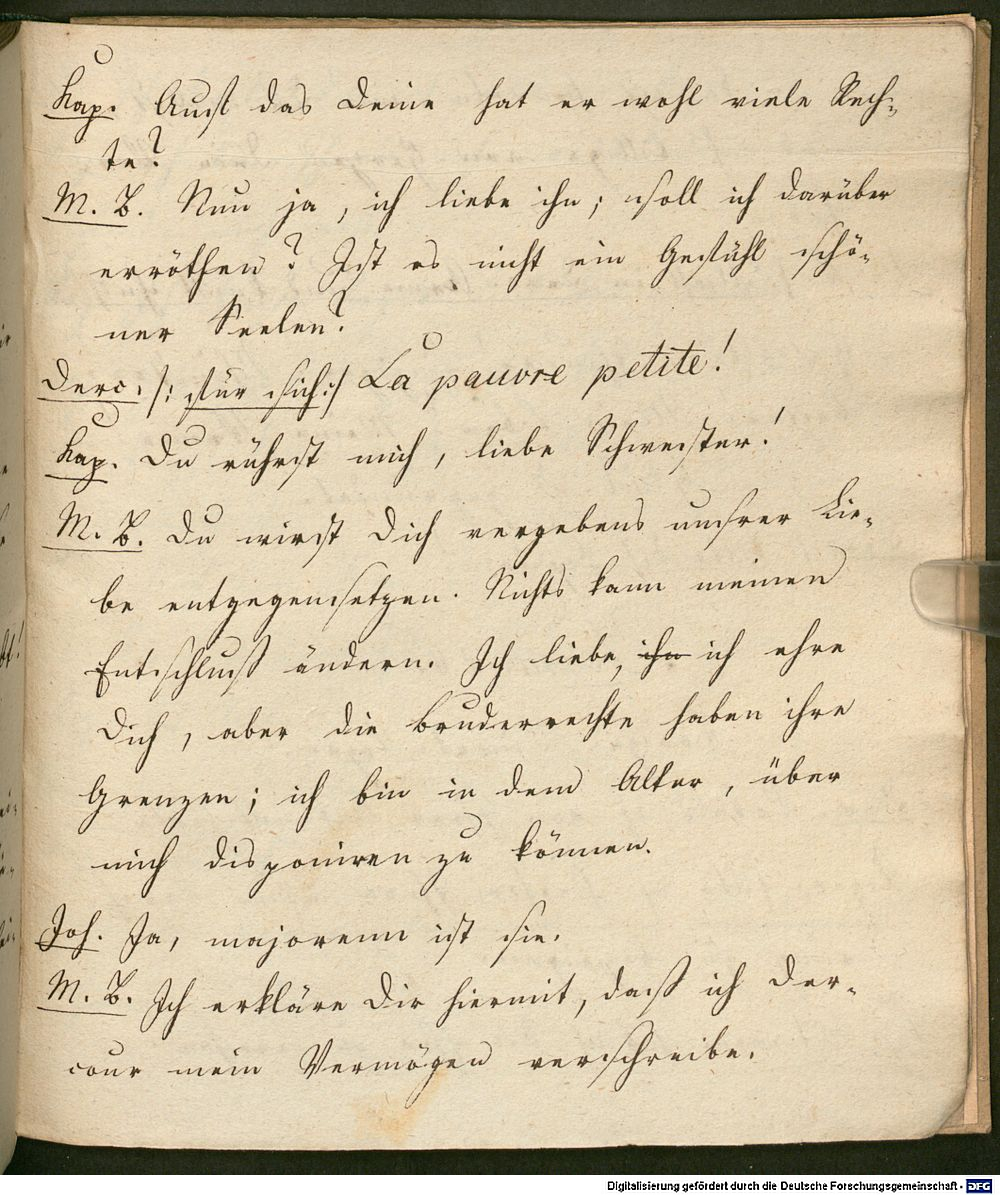 Kap. Auf das Deine hat er wohl viele Rech-
te?
M. B. Nun ja, ich liebe ihn; soll ich darüber
erröthen? Ist es nicht ein Gefühl schö-
ner Seelen?
Derc. /: für sich :/ La pauvre petite!
Kap. Du rührst mich, liebe Schwester!
M. B. Du wirst Dich vergebens unsrer Lie-
be entgegensetzen. Nichts kann meinen
Entschluß ändern. Ich liebe, ihn ich ehre
Dich, aber die Bruderrechte haben ihre
Grenzen; ich bin in dem Alter, über
mich disponiren zu können.
Joh. Ja, majorenn ist sie.
M. B. Ich erkläre Dir hiermit, daß ich Der-
cour mein Vermögen verschreibe.
Digitalisierung gefördert durch die Deutsche Forschungsgemeinschaft - DFG